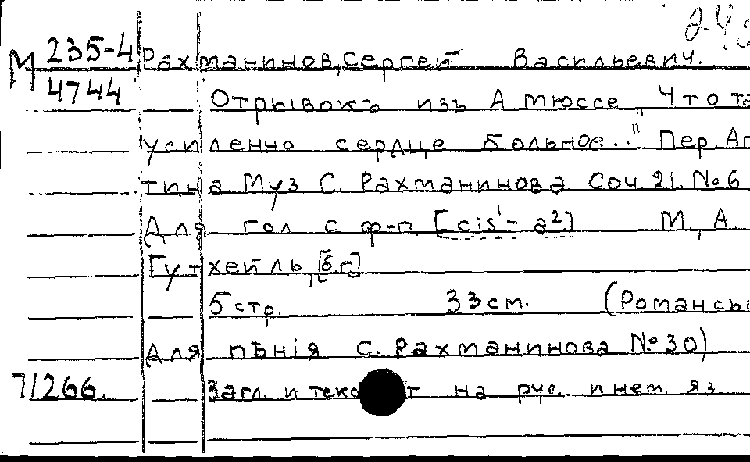 М 235-4 Рахманинов, Сергей Васильевич.
4744 Отрывокъ изъ А Мюссе „Что та
усиленно сердце больное.." Пер Ап
тина Муз С. Рахманинова Соч 21. №6
Для гол с ф-п [cis¹- a²] М., А.
Гутхейль, [б.г.]
5 стр. 33 см. (Романсы
для пѣнія С. Рахманинова №30)
71266. Загл. и текст на рус. и нем. яз